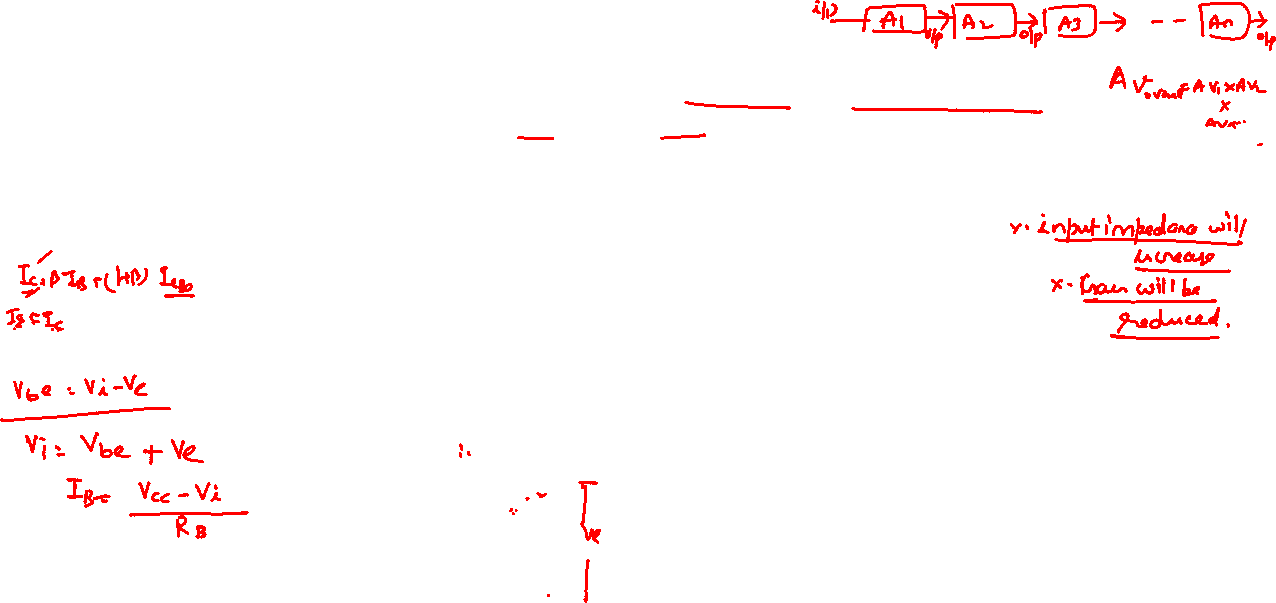 i/p A1 i/p A2 o/p A3 -- An o/p
A Voverall = Av1 x Av2
x
Avn
x. input impedance will
increase
x. Gain will be
reduced.
Ic = β IB + (1+β) ICBO
IE ≅ Ic
Vbe = Vi - Ve
Vi = Vbe + Ve
IB = Vcc - Vi
RB
Ve